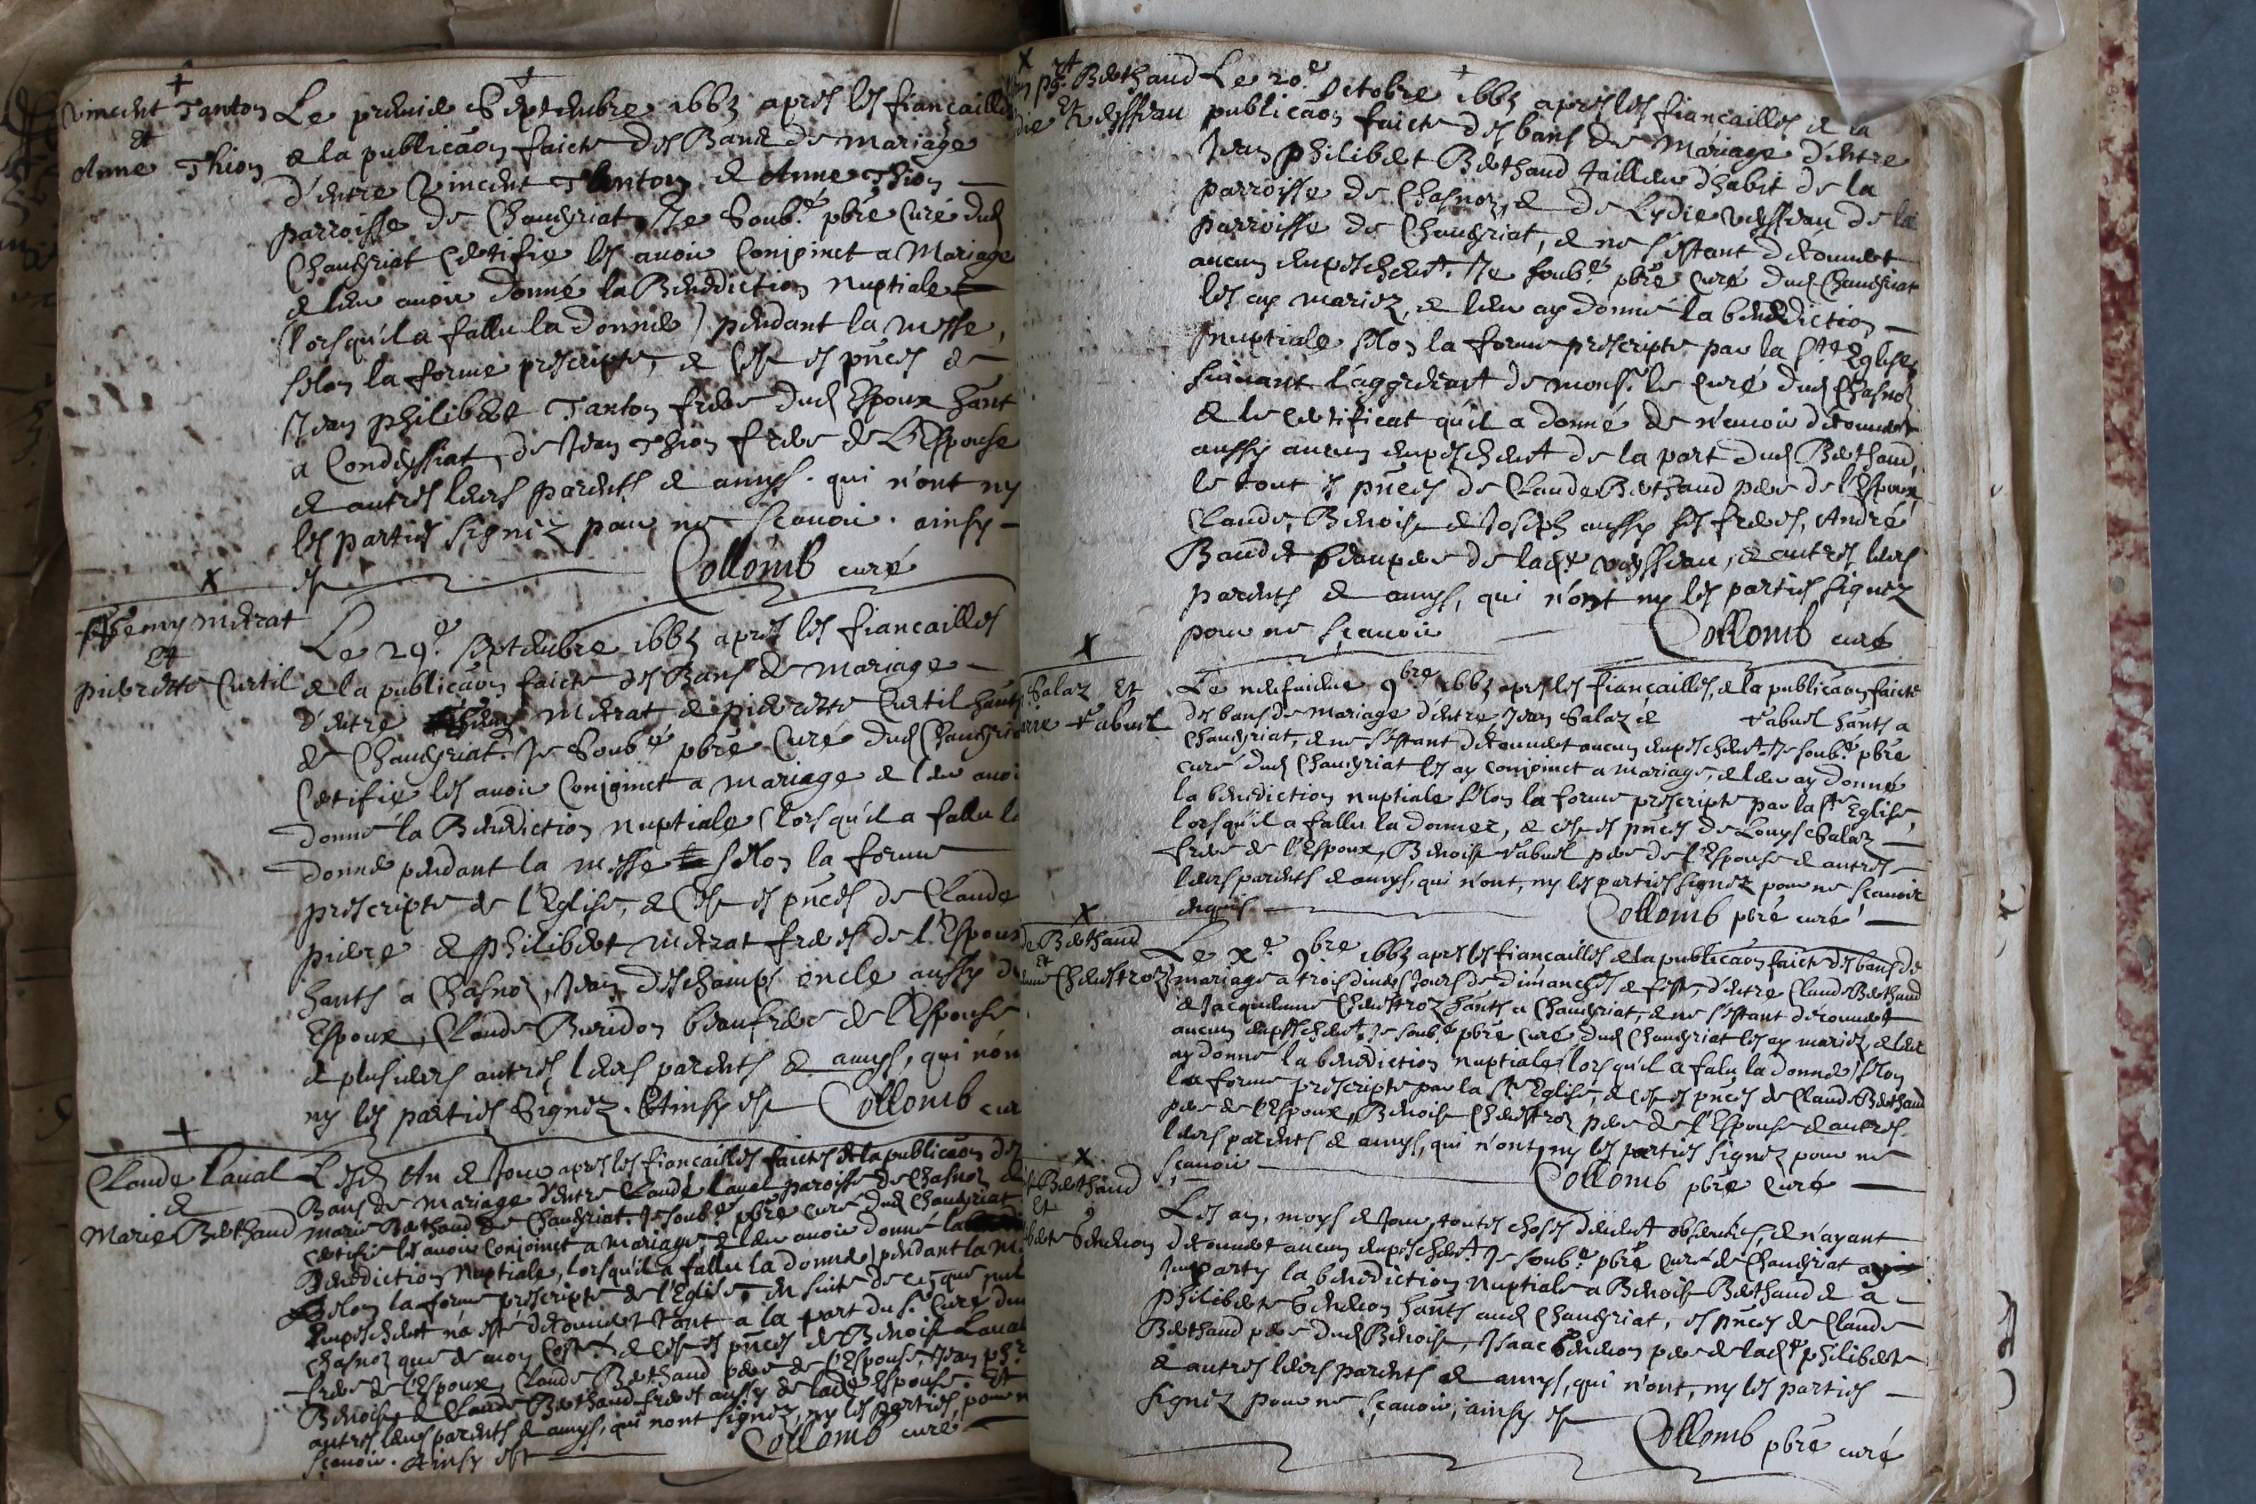 Vincent Tanton
et
Anne Thion
Le premier Septembre 1663 apres les fiancailles
& la publicaon faicte des Bans de mariage
d'entre Vincent Tanton & Anne Thion
parroisse de Chaveyriat, Je Soubné pbre Curé dud
Chaveyriat Certifie les avoir Conjoinct a Mariage
& leur avoir donné la Benediction nuptiale
(lorsqu'il a fallu la donner) pendant la messe,
selon la forme prescripte, & c'est es pnces de
Jean Philibert Tanton frere dud Espoux hant
a Condeyssiat, de Jean Thion frere de L'Espouse
& autres leurs parents & amys. qui n'ont ny
les parties signez pour ne scavoir. ainsy
est
Collomb curé
Remy Mitrat
et
pierrette Curtil
Le 29e. septembre 1663 apres les fiancailles
& la publicaon faicte des Bans de mariage
d'entre Mitrat & pierrette Curtil hants
de Chaveyriat. Je Soubné pbre Curé dud Chaveyria
Certifie les avoir Conjoinct a mariage & leur avoi
donné la Benediction nuptiale (lorsqu'il a fallu la
donner pendant la messe selon la forme
prescripte de l'Eglise, & C'est es pnces de Claude
pierre & philibert Mitrat freres de l'Espoux
hants a Chasnoz, Jean deschamps oncle aussy de
Espoux, Claude Buridon beaufrere de l'Espouse
& plusieurs autres leurs parents & amys, qui n'on
ny les parties Signez. Ainsy est Collomb cur
Claude Laval
&
Marie Berthaud
Lesd An & Jour apres les fiancailles faictes & la publicaon des
Bans de mariage d'entre Claude Laval parroisse de Chasnoz &
marie Berthaud de Chaveyriat. Je soubné pbre curé dud Chaveyriat
certifie les avoir conjoinct a mariage, & leur avoir donné la
Benediction Nuptiale, lorsqu'il a fallu la donner) pendant la m
Selon la forme prescripte de l'Eglise, En suite de ce que nul
Empeschement n'a esté descouvert tant a la part du sr. Curé dud
Chasnoz que de mon Costé. & c'est es pnces de Benoist Laval
frere de l'Espoux, Claude Berthaud pere de l'Espouse, Jean phe.
Benoist & Claude Berthaud freres aussy de lade Espouse Et
autres leurs parents & amys, qui n'ont signez, ny les parties, pour n
scavoir. Ainsy est
Collomb curé
pht. Berthaud
die Veysseau
Le 20e. Octobre 1663 apres les fiancailles & la
publicaon faicte des bans de Mariage d'entre
Jean philibert Berthaud tailleur d'habit de la
parroisse de Chasnoz, & de Lydie Veysseau de la
parroisse de Chaveyriat, & ne s'estant descouvert
aucun empeschemt. Je soubné pbre Curé dud Chaveyriat
les ay mariez, & leur ay donné la benediction
nuptiale selon la forme prescripte par la Ste Eglise,
suivant l'aggreement de monsr. le Curé dud Chasnoz
& le certificat qu'il a donné de n'avoir descouvert
aussy aucun empeschemt de la part dud Berthaud,
le tout es pnces de Claude Berthaud pere de l'Espoux
Claude, Benoist & Joseph aussy ses freres, André
Baudet beaupere de ladte Veysseau, & autres leurs
parents & amys, qui n'ont ny les parties signez
pour ne scavoir
Collomb curé
Salaz Et
rre Vabuel
Le neufvieme 9bre 1663 apres les fiancailles, & la publicaon faicte
des bans de mariage d'entre Jean Salaz & Vabuel hants a
Chaveyriat, & ne s'estant descouvert aucun empeschemt. Je soubné pbre
curé dud Chaveyriat les ay conjoinct a mariage, & leur ay donné
la benediction nuptiale selon la forme prescripte par la ste Eglise,
lorsqu'il a fallu la donner, & c'est es pnces de Louys Salaz
frere de l'Espoux, Benoist Vabuel pere de l'Espouse & autres
leurs parents & amys, qui n'ont, ny les parties signez pour ne scavoir
enquis
Collomb pbre curé
de Berthaud
Et
Chevestroz
Le Xe. 9bre 1663 apres les fiancailles & la publicaon faicte des bans de
mariage a trois divers Jours de dimanches & feste, d'entre Claude Berthaud
& Jacquemme Chevestroz hants a Chaveyriat, & ne s'estant descouvert
aucun empeschemt. Je soubné pbre curé dud Chaveyriat les ay mariez, & leur
ay donné la benediction nuptiale (lorsqu'il a falu la donner) selon
la forme prescripte par la Ste Eglise, & c'est es pnces de Claude Berthaud
pere de l'Espoux, Benoist Chevestroz pere de l'Espouse & autres
leurs parents & amys, qui n'ont, ny les parties signez pour ne
scavoir
Collomb pbre curé
Berthaud
Et
Gendron
Les an, moys & Jour, toutes choses deuemt observées, & n'ayant
descouvert aucun empeschemt Je soubné pbre curé de Chaveyriat ay
Imparty la benediction nuptiale a Benoist Berthaud & a
philiberte Gendron hants aud Chaveyriat, es pnces de Claude
Berthaud pere dud Benoist, Isaac Gendron pere de ladte philiberte
& autres leurs parents & amys, qui n'ont, ny les parties
signez pour ne scavoir, ainsy est
Collomb pbre curé